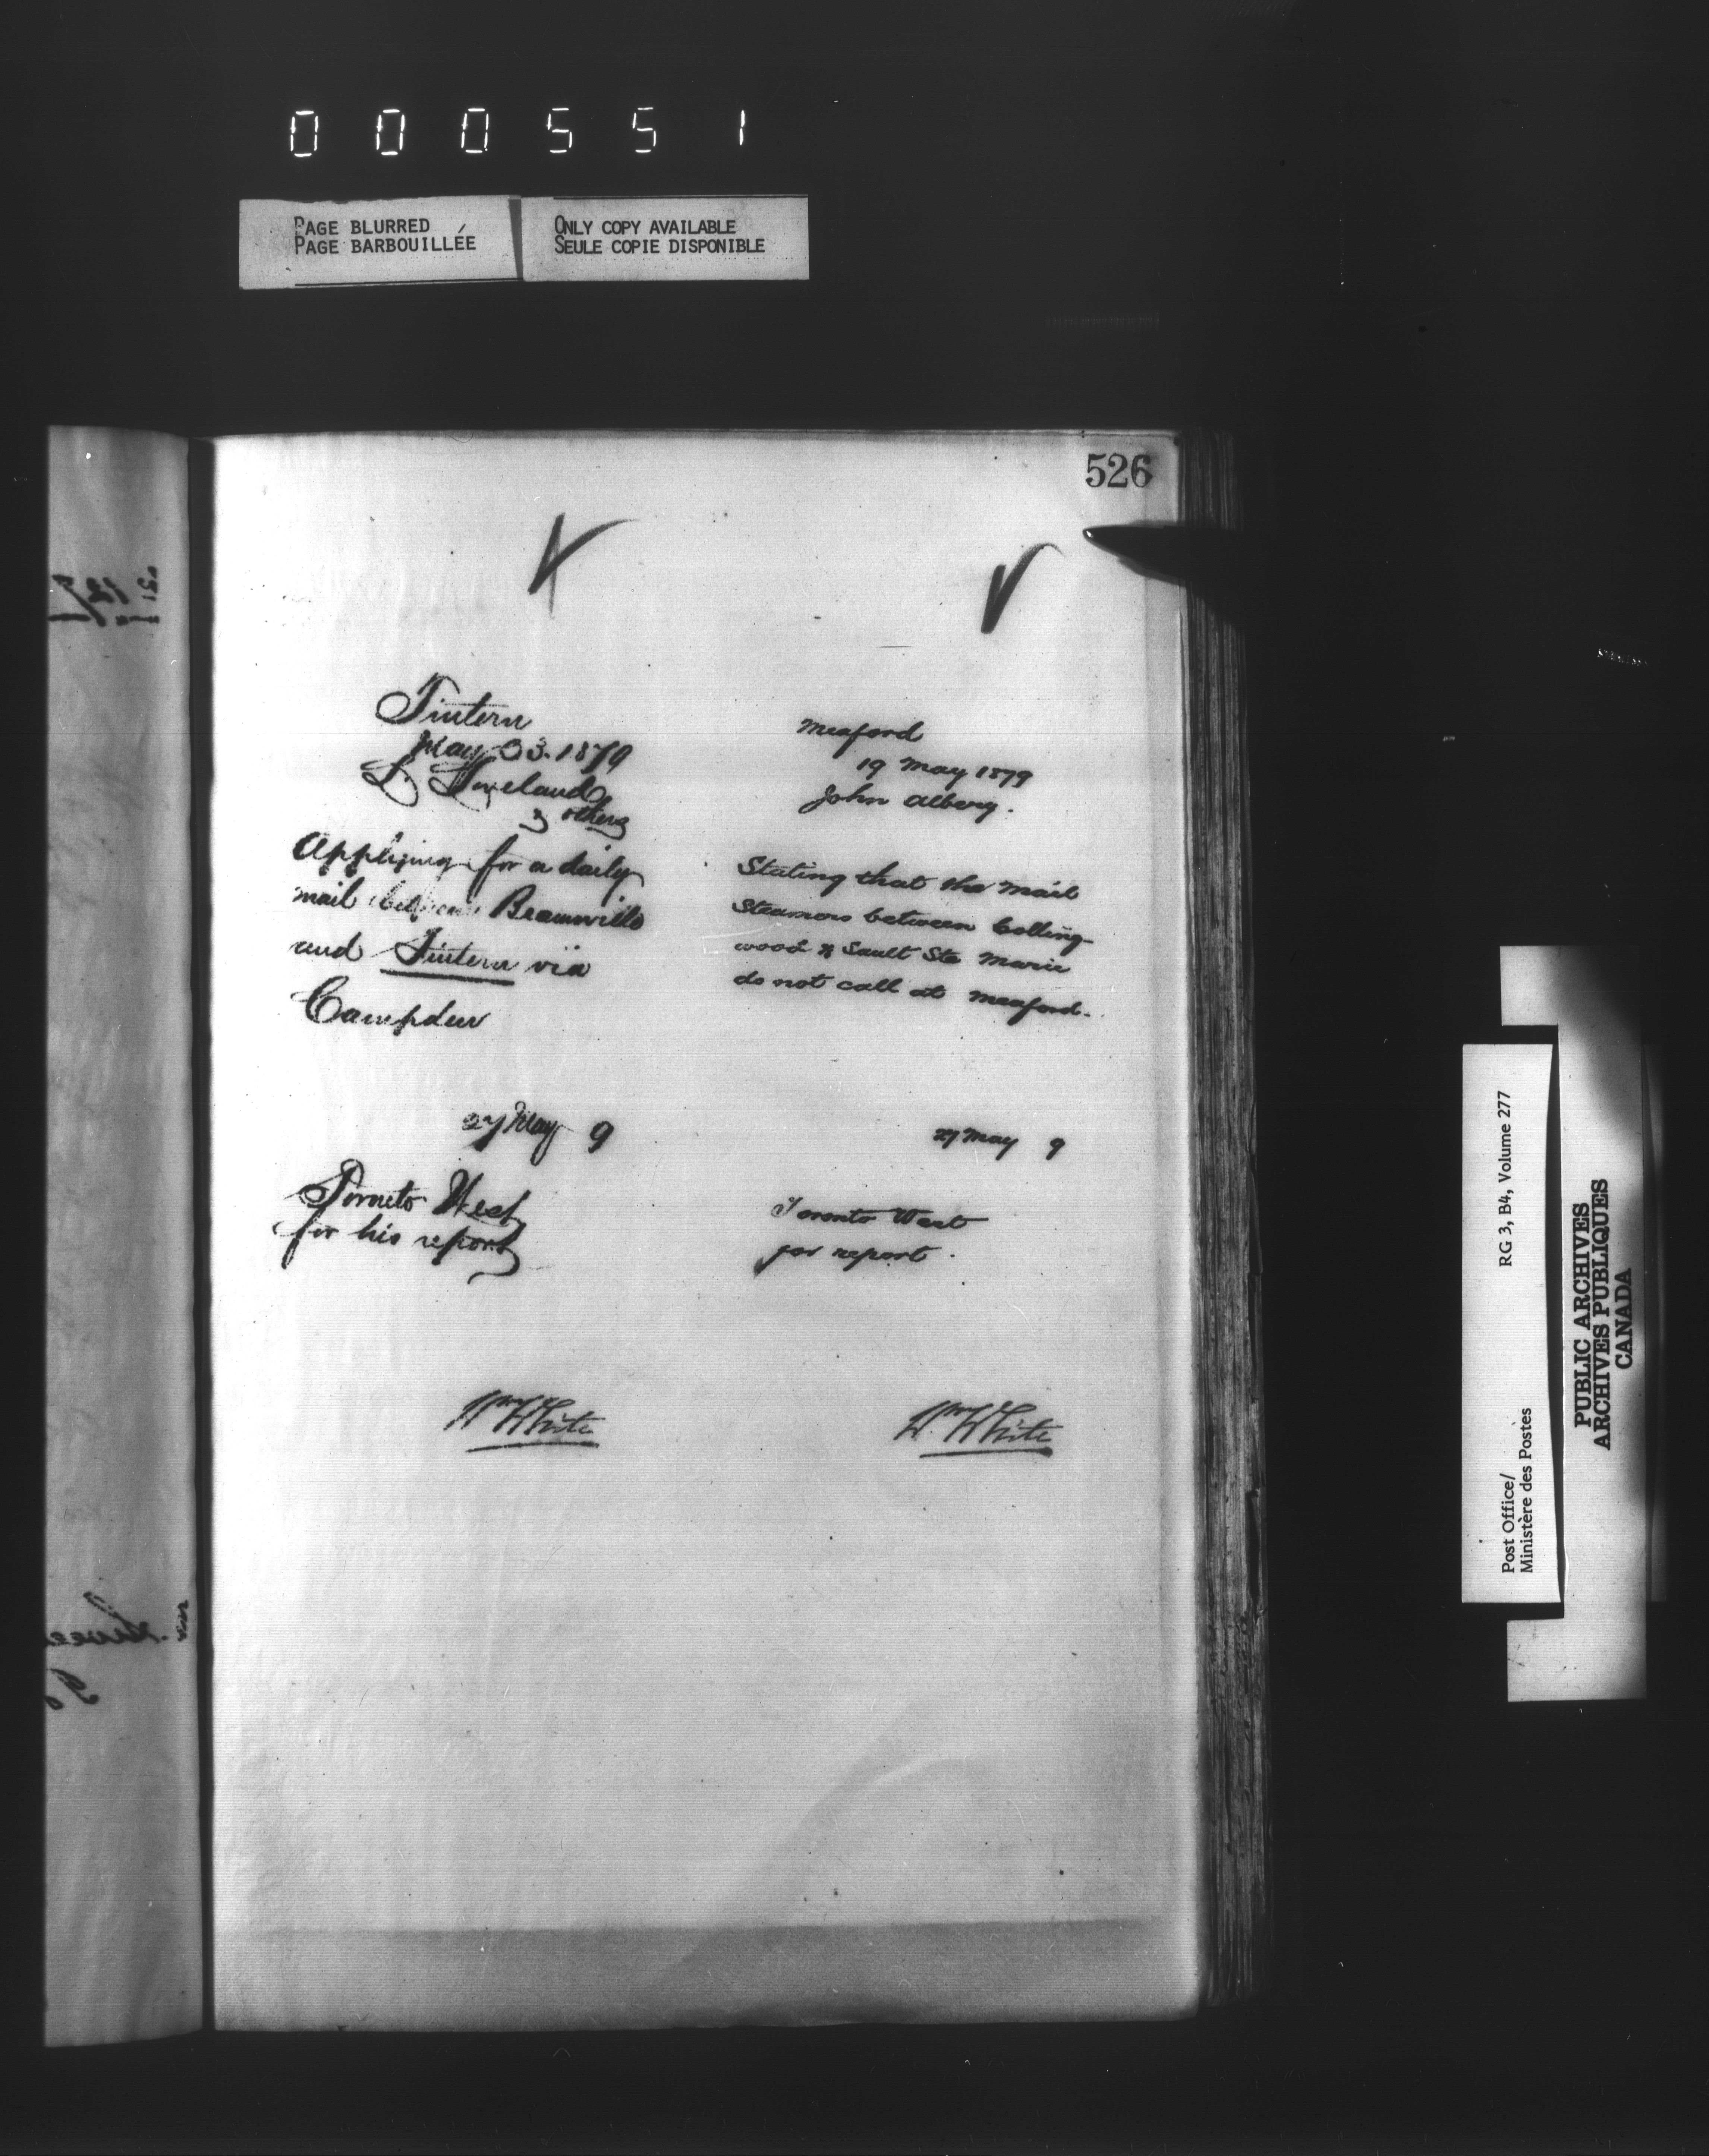 000551
PAGE BLURRED
PAGE BARBOUILLÉE
ONLY COPY AVAILABLE
SEULE COPIE DISPONIBLE
526
Tintern
May 23. 1879
L.
& others
Applying for a daily
mail between Beamsville
and Tintern via
Campden
27 May 9
Toronto West
for his report
Wm White
Meaford
19 May 1879
John Alberry.
Stating that the mail
Steamers between Colling-
wood & Sault Ste Marie
do not call at Meaford.
27 May 9
Toronto West
for report.
Wm White
Post Office/
Ministère des Postes
RG 3, B4, Volume 277
PUBLIC ARCHIVES
ARCHIVES PUBLIQUES
CANADA